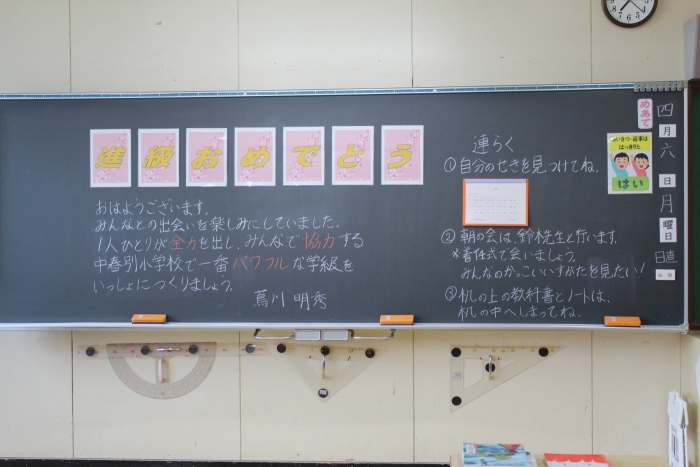 進級おめでとう
おはようございます。
みんなとの出会いを楽しみにしていました。
1人ひとりが全力を出し、みんなで協力する
中春別小学校で一番パワフルな学級を
いっしょにつくりましょう。
蔦川 明秀
連らく
①自分のせきを見つけてね。
②朝の会は、鈴木先生と行います。
※着任式で会いましょう。
みんなのかっこいいすがたを見たい!
③机の上の教科書とノートは、
机の中へしまってね。
めあて
あいさつ・返事は
はっきりと
はい
四
月
六
日
月
曜日
日直